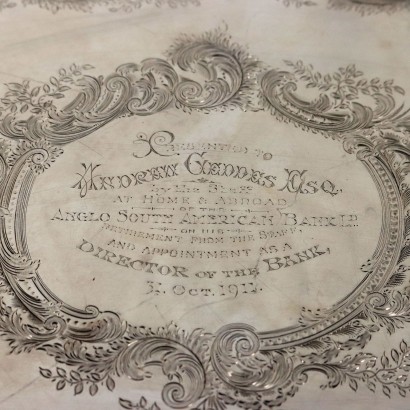 Presented to
Andrew Geddes Esq.
by the Staff
at Home & Abroad
of the
Anglo South American Bank Ld.
on his
retirement from the Staff,
and appointment as a
Director of the Bank,
Oct. 1912.